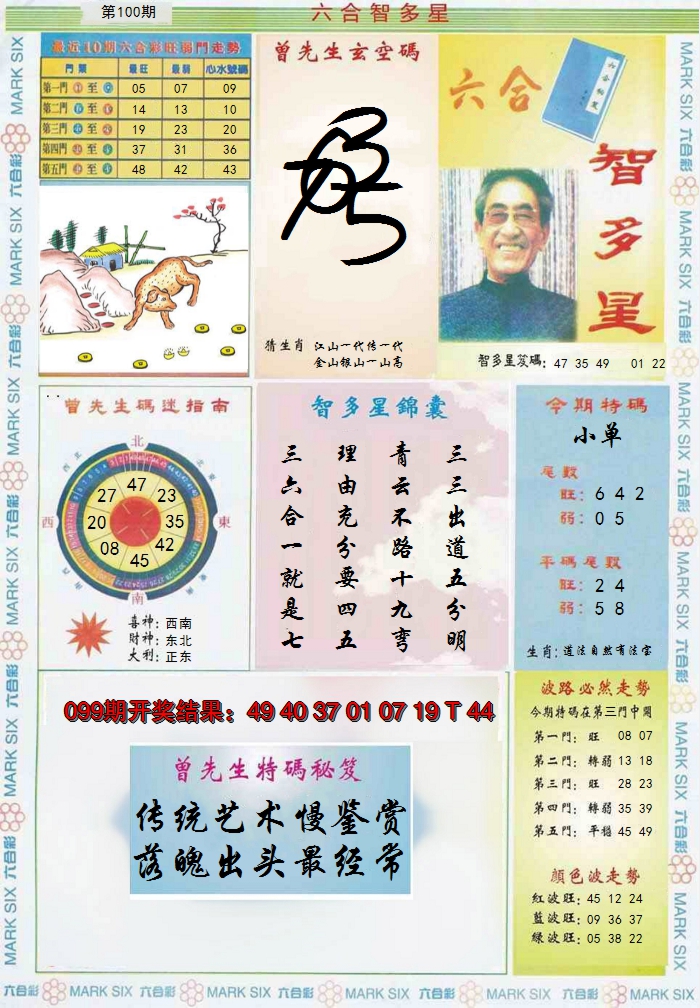 第100期
六合智多星
最近10期六合彩旺弱門走勢
門類 最旺 最弱 心水號碼
第一門 至 05 07 09
第二門 至 14 13 10
第三門 至 19 23 20
第四門 至 37 31 36
第五門 至 48 42 43
曾先生玄空碼
猜生肖 江山一代传一代
金山银山一山高
六合
智多星
智多星笈碼: 47 35 49 01 22
曾先生碼迷指南
北
西北
東北
47
27 23
西 20 35 東
08 42
45
南
喜神: 西南
財神: 东北
大利: 正东
智多星錦囊
三三出道五分明
青云不路十九弯
理由充分要四五
三六合一就是七
今期特碼
小单
尾数
旺: 6 4 2
弱: 0 5
平碼尾数
旺: 2 4
弱: 5 8
生肖: 道法自然有法宝
099期开奖结果: 49 40 37 01 07 19 T 44
曾先生特碼秘笈
传统艺术慢鉴赏
落魄出头最经常
波路必然走勢
今期特碼在第三門中開
第一門: 旺 08 07
第二門: 轉弱 13 18
第三門: 旺 28 23
第四門: 轉弱 35 39
第五門: 平穩 45 49
顏色波走勢
紅波旺: 45 12 24
藍波旺: 09 36 37
綠波旺: 05 38 22
MARK SIX 六合彩 MARK SIX 六合彩 MARK SIX 六合彩 MARK SIX 六合彩